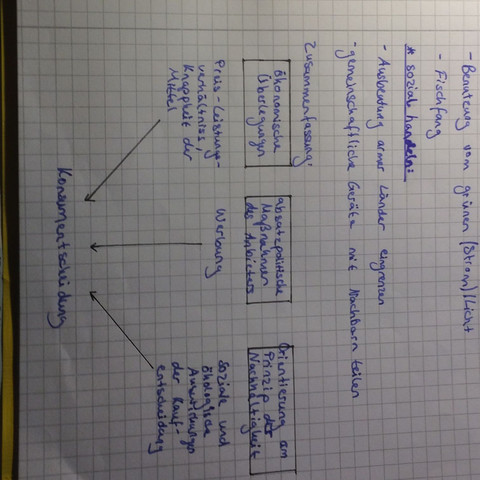 - Benutzung vom grünen (Strom)/Licht
- Fischfang
* sozial handeln:
- Ausbeutung armer Länder eingrenzen
- gemeinschaftliche Geräte mit Nachbarn teilen
Zusammenfassung:
ökonomische
Überlegungen
Preis-Leistungs-
verhältniss,
Knappheit der
Mittel
absatzpolitische
Maßnahmen
des Anbieters
Werbung
Orientierung am
Prinzip der
Nachhaltigkeit
soziale und
ökologische
Auswirkungen
der Kauf-
entscheidung
Konsumentscheidung